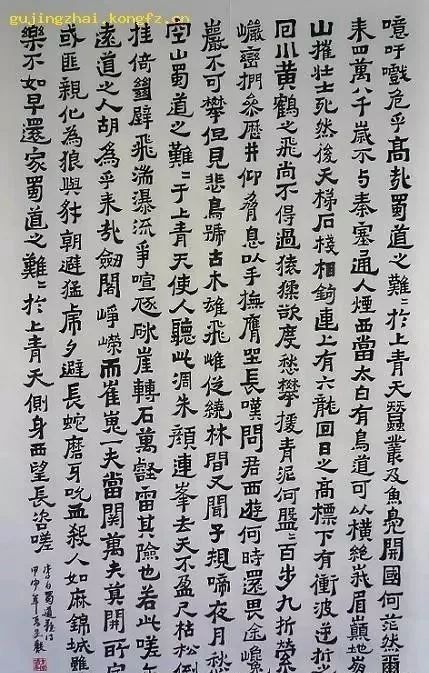 gujingzhai.kongfz.
噫吁戲危乎高哉蜀道之難〻於上青天蠶叢及魚鳧開國何茫然爾
来四萬八千歲不与秦塞通人煙西當太白有鳥道可以橫絶峩眉巔地崩
山摧壮士死然後天梯石棧相鉤連上有六龍回日之高標下有衝波逆折之
回川黃鶴之飛尚不得過猿猱欲度愁攀援青泥何盤〻百步九折縈
巖巒捫參歷井仰脅息以手撫膺坐長嘆問君西遊何時還畏途巉
巖不可攀但見悲鳥號古木雄飛雌従繞林間又聞子規啼夜月愁
空山蜀道之難〻于上青天使人聽此凋朱顏連峯去天不盈尺枯松倒
挂倚絶壁飛湍瀑流爭喧豗砯崖轉石萬壑雷其險也若此嗟尔
遠道之人胡為乎来哉劔閣崢嶸而崔嵬一夫當関萬夫莫開所守
或匪親化為狼與豺朝避猛虎夕避長蛇磨牙吮血殺人如麻錦城雖
樂不如早還家蜀道之難〻於上青天側身西望長咨嗟
李白蜀道難詩
甲申年